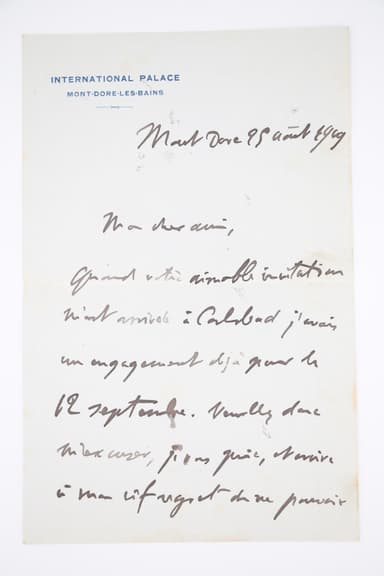 INTERNATIONAL PALACE
MONT-DORE-LES-BAINS
Mont Dore 25 août 1909
Mon cher ami,
Quand votre aimable invitation
m'est arrivée à Carlsbad j'avais
un engagement déjà pour le
12 septembre. Veuillez donc
m'excuser, je vous prie, et croire
à mon vif regret de ne pouvoir